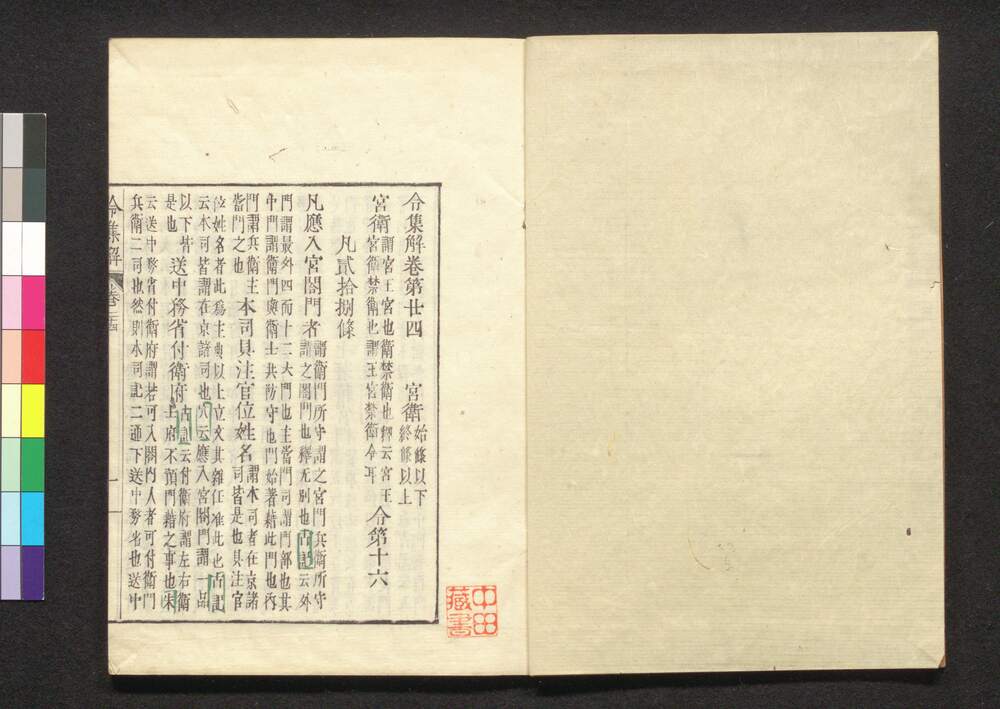 令集解卷第廿四　宮衛始條以下終條以上
宮衛謂宮王宮也衛禁衛也釋云宮王宮衛禁衛也謂王宮禁衛令耳令第十六
凡貳拾捌條
凡應入宮閤門者謂衛門所守謂之宮門兵衛所守謂之閤門也釋无別也古記云外
門謂最外四面十二大門也主當門司謂門部也其中門謂衛門與衛士共防守也門始著藉此門也內
門謂兵衛主當門之也本司具注官位姓名謂本司者在京諸司皆是也具注官
位姓名者此爲主典以上立文其雜任准此也古記云本司皆謂在京諸司也穴云應入宮閤門謂一品
以下皆是也送中務省付衛府古記云付衛府謂左右衛士府不預門藉之事也朱
云送中務省付衛府謂若可入閤內人者可付衛門兵衛二司也然則本司記二通下送中務省也送中
令集解
卷二十四
一
中田
藏書